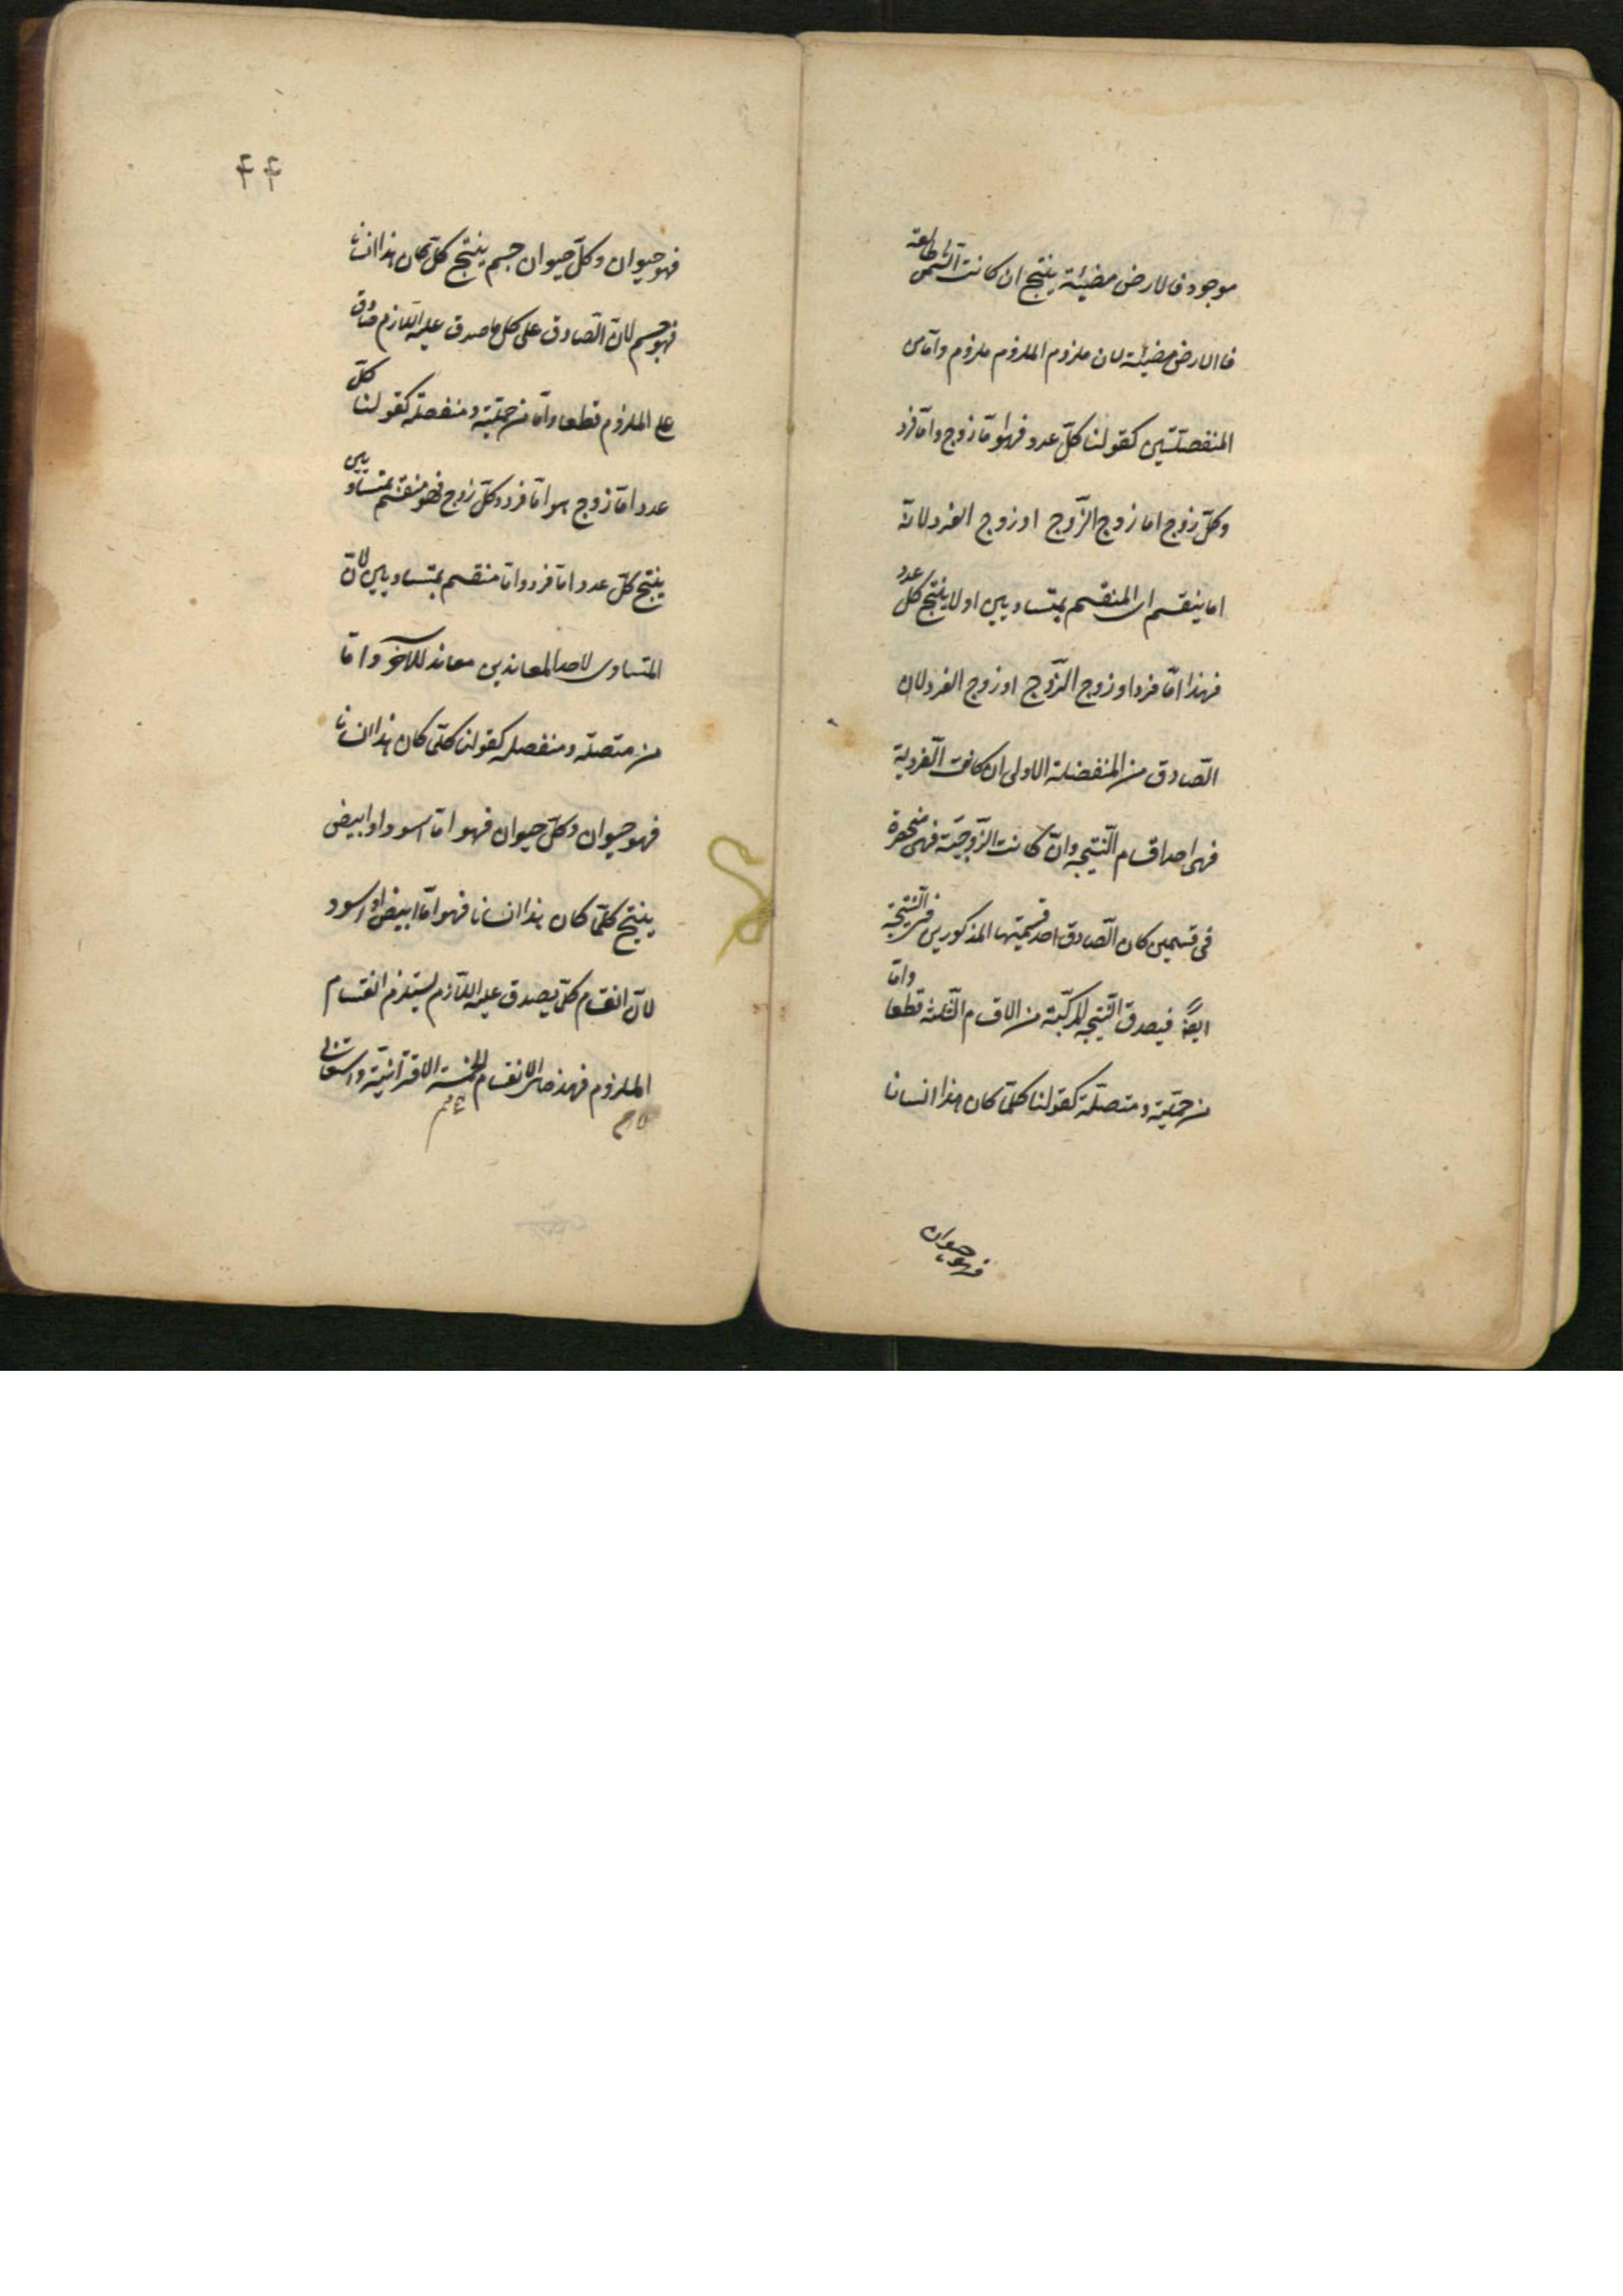 موجود فالارض مضيئة ينتج ان كانت الشمس طالعة
فاالارض مضيئة لان ملزوم الملزوم ملزوم وامّا من
المنفصلتين كقولنا كلّ عدد فهو امّا زوج وامّا فرد
وكلّ زوج اما زوج الزّوج او زوج الفرد لانّه
اما ينقسم اى المنقسم بمتساويين اولا ينتج كل عدد
فهذا امّا فرد او زوج الزّوج او زوج الفرد لان
الصّادق من المنفصلة الاولى ان كانت الفردية
فهى احد اقسام النّتيجه وان كانت الزّوجيّة فهى منحصرة
فى قسمين كان الصّادق احد قسميها المذكورين فى النّتيجة
ايضاً فيصدق النّتيجه المركّبة من الاقسام الثّلثه قطعا وامّا
من حمليّة ومتصلّة كقولنا كلّما كان هذا انسانا
فهو حيوان
۴۴
فهو حيوان وكلّ حيوان جسم ينتج كلّما كان هذا انسانا
فهو جسم لانّ الصّادق على كل ما صدق عليه اللّازم صادق
على الملزوم قطعا وامّا من حمليّة ومنفصلة كقولنا كلّ
عدد امّا زوج هو امّا فرد وكلّ زوج فهو منقسم بمتساويين
ينتج كلّ عدد امّا فرد وامّا منقسم بمتساويين لانّ
المتساوى لاحد المعاندين معاند للآخر وامّا
من متصلّه ومنفصله كقولنا كلّما كان هذا انسانا
فهو حيوان وكلّ حيوان فهو امّا اسود او ابيض
ينتج كلّما كان هذا انسانا فهو امّا ابيض او اسود
لانّ انقسام كلّ يصدق عليه اللّازم يستلزم انقسام
الملزوم فهذه الانقسام الخمسة الاقترانيّة واستثنائى